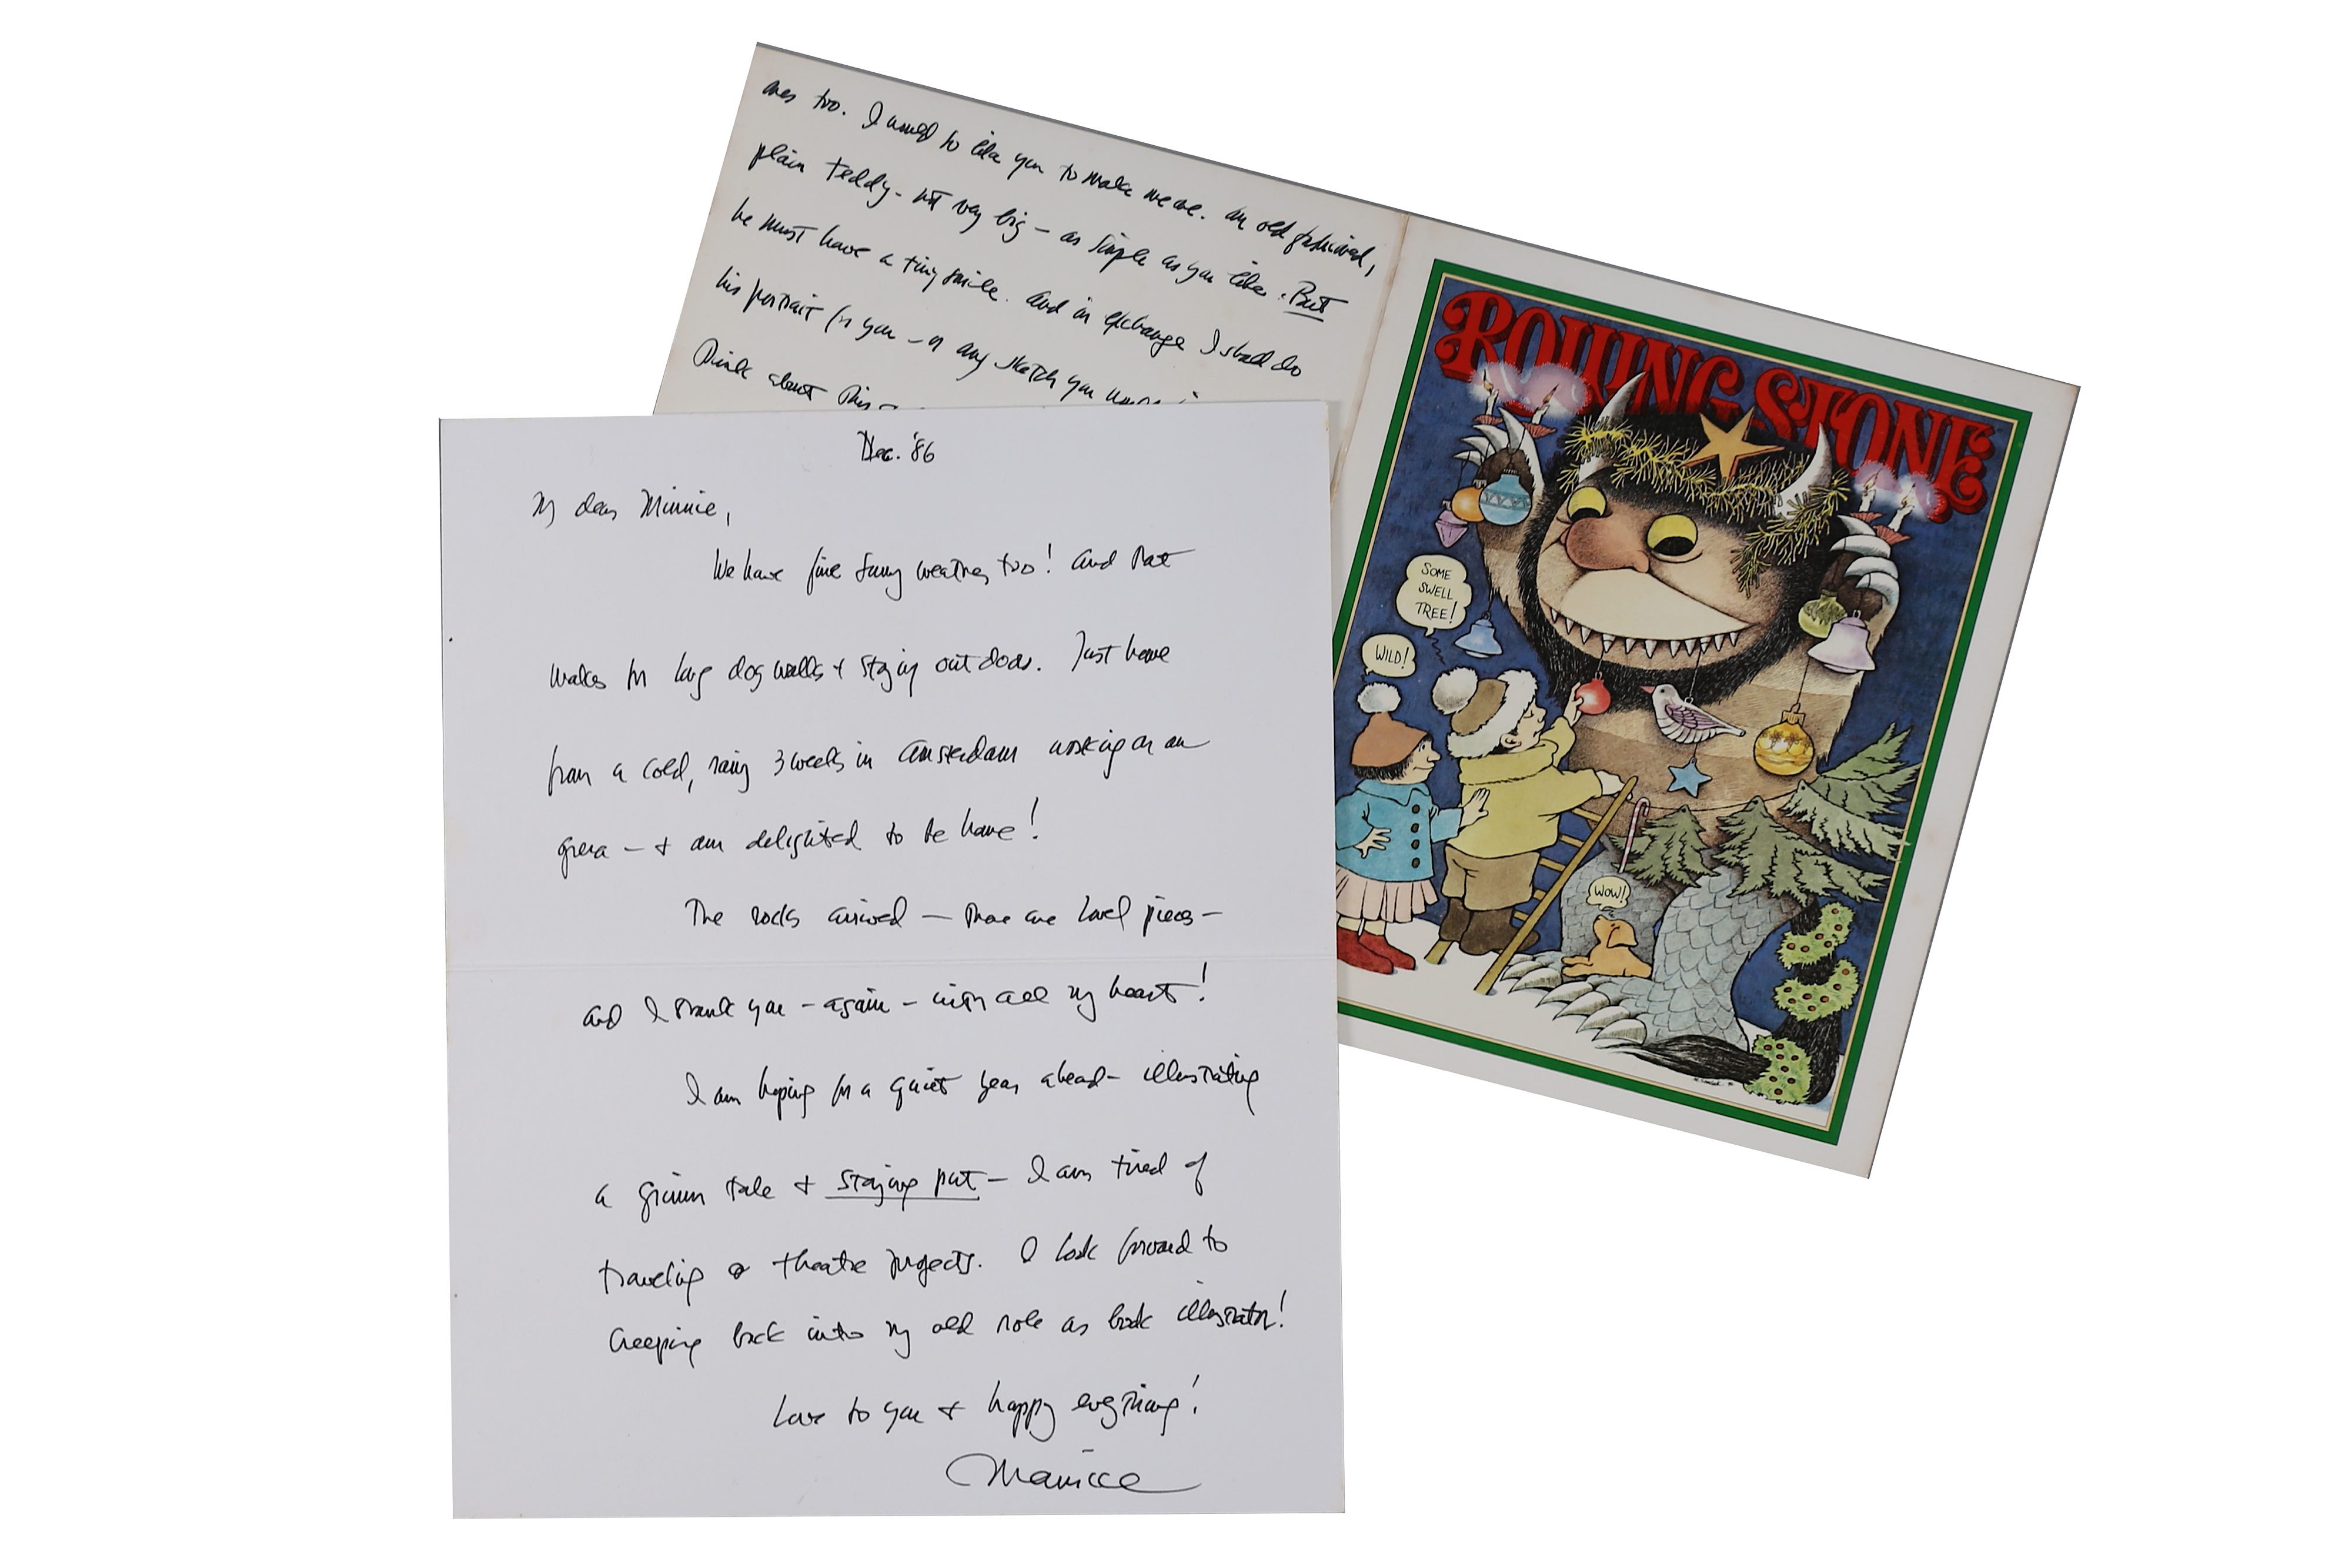 ones too. I would so like you to make me one. An old fashioned,
plain Teddy - not very big - as simple as you like. But
he must have a tiny smile. And in exchange I shall do
his portrait for you - or any sketch you
Think about this -
ROLLING STONE
SOME
SWELL
TREE!
WILD!
WOW!
Dec. '86
My dear Minnie,
We have fine sunny weather, too! And that
makes for long dog walks + staying outdoors. Just home
from a cold, rainy 3 weeks in Amsterdam working on an
opera - + am delighted to be home!
The rocks arrived - those are lovel pieces -
and I thank you - again - with all my heart!
I am hoping for a quiet year ahead - illustrating
a grimm tale + staying put - I am tired of
traveling & theatre projects. I look forward to
creeping back into my old role as book illustrator!
Love to you + happy everything!
Maurice